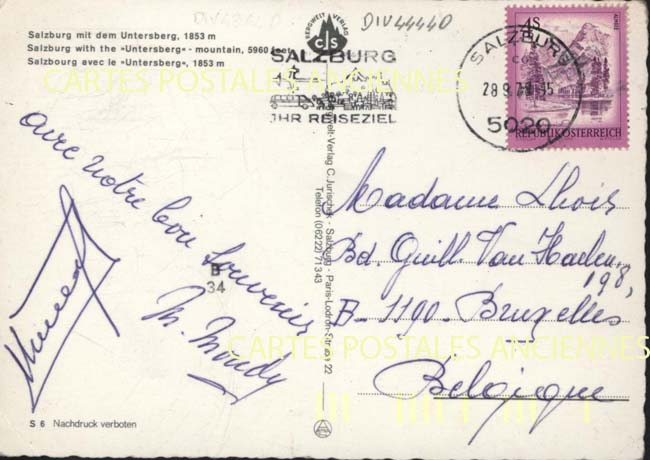 DIV4364D
DIV44440
Salzburg mit dem Untersberg, 1853 m
Salzburg with the »Untersberg« - mountain, 5960 feet
Salzbourg avec le »Untersberg«, 1853 m
BERGWELT VERLAG
CJS
SALZBURG
IHR REISEZIEL
SALZBURG
28.9.
5020
4S
REPUBLIK ÖSTERREICH
CARTES POSTALES ANCIENNES
avec notre bon souvenir
M. Mondy
B
34
Bergwelt-Verlag C. Jurischek - Salzburg - Paris-Lodron-Straße 22
Telefon (06222) 71343
Madame Lhoir
Bd. Guill. Van Haelen
198,
B-1190-Bruxelles
Belgique
CARTES POSTALES ANCIENNES
S 6 Nachdruck verboten